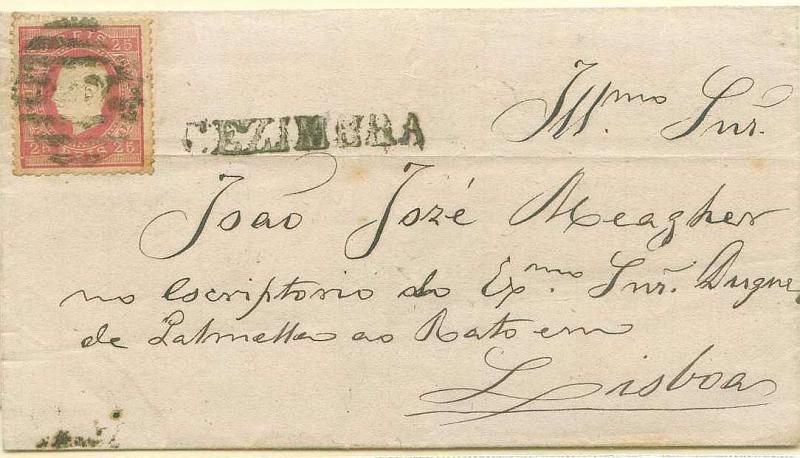 REIS 25
CEZIMBRA
25 REIS 25
Ill.mo Snr.
João José Meagher
no escriptorio do Ex.mo Snr. Duque
de Palmella ao Rato em
Lisboa